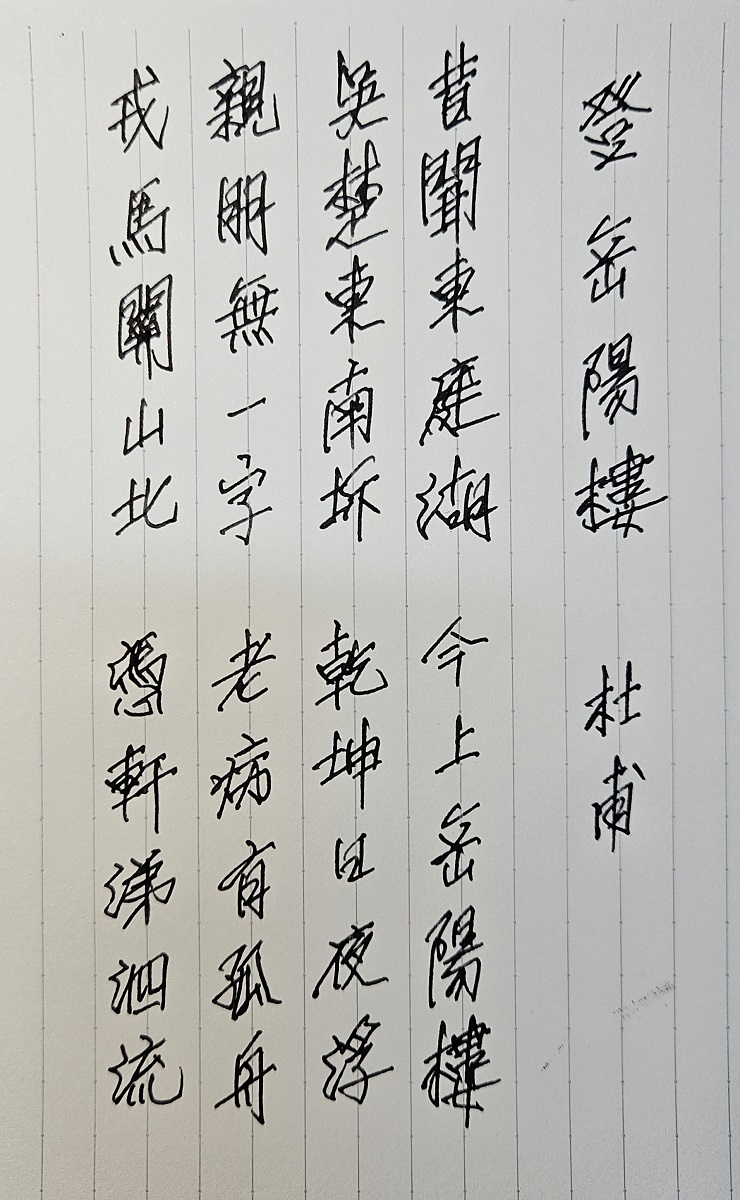 登岳陽樓 杜甫
昔聞東庭湖 今上岳陽樓
吳楚東南坼 乾坤日夜浮
親朋無一字 老病有孤舟
戎馬關山北 憑軒涕泗流